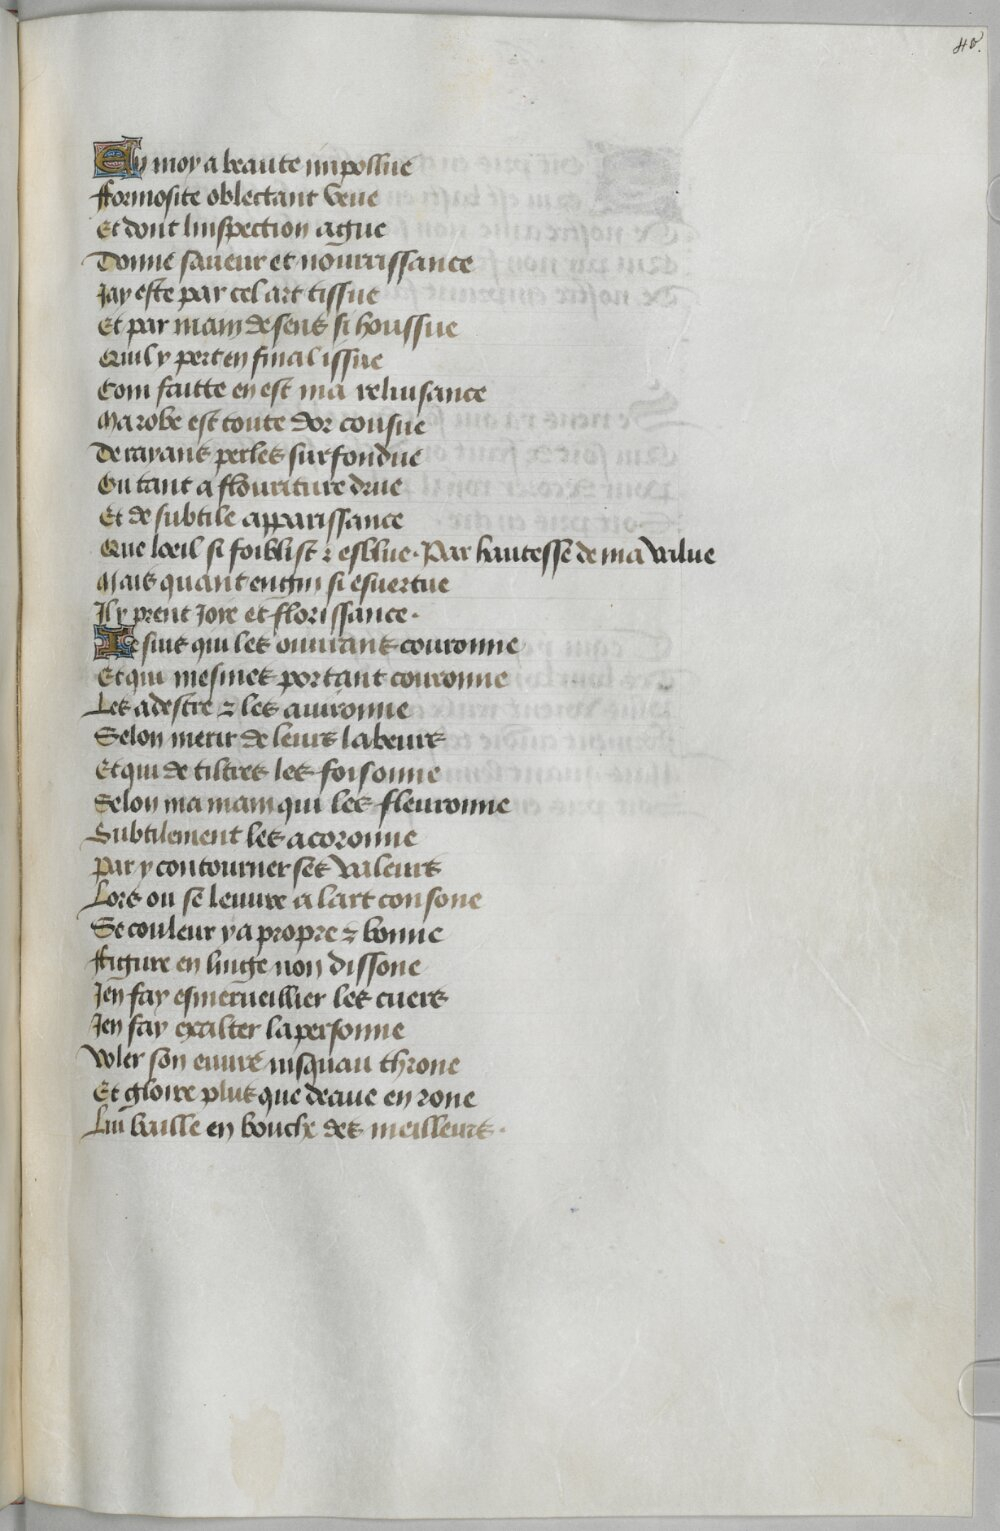 40.
En moy a beaute impollue
Formosite oblectant veue
Et dont linspection ague
Donne saueur et nourrissance
Jay este par cel art tissue
Et par main de sens si houssue
Quil y pert en final issue
Com faitte en est ma reluisance
Ma robe est toute dor cousue
De rayans perles surfondue
Ou tant a flouriture drue
Et de subtile apparissance
Que loeil si foiblist & esblue. Par haultesse de ma value
Mais quant engin si esuertue
Il y prent Joye et florissance.
Je suis qui les ouurans couronne
Et qui mesmes portant couronne
Les adestre & les auironne
Selon merir de leurs labeurs
Et qui de tiltres les foisonne
Selon ma main qui les fleuronne
Subtilement les acoronne
Par y contourner ses valeurs
Lors ou se leuure a lart consone
Se couleur y a propre & bonne
Figure en linge non dissone
Jen fay esmerueillier les cuers
Jen fay exalter la personne
Voler son euure jusquau throne
Et gloire plus que deaue en rone
Lui baille en bouche des meilleurs.